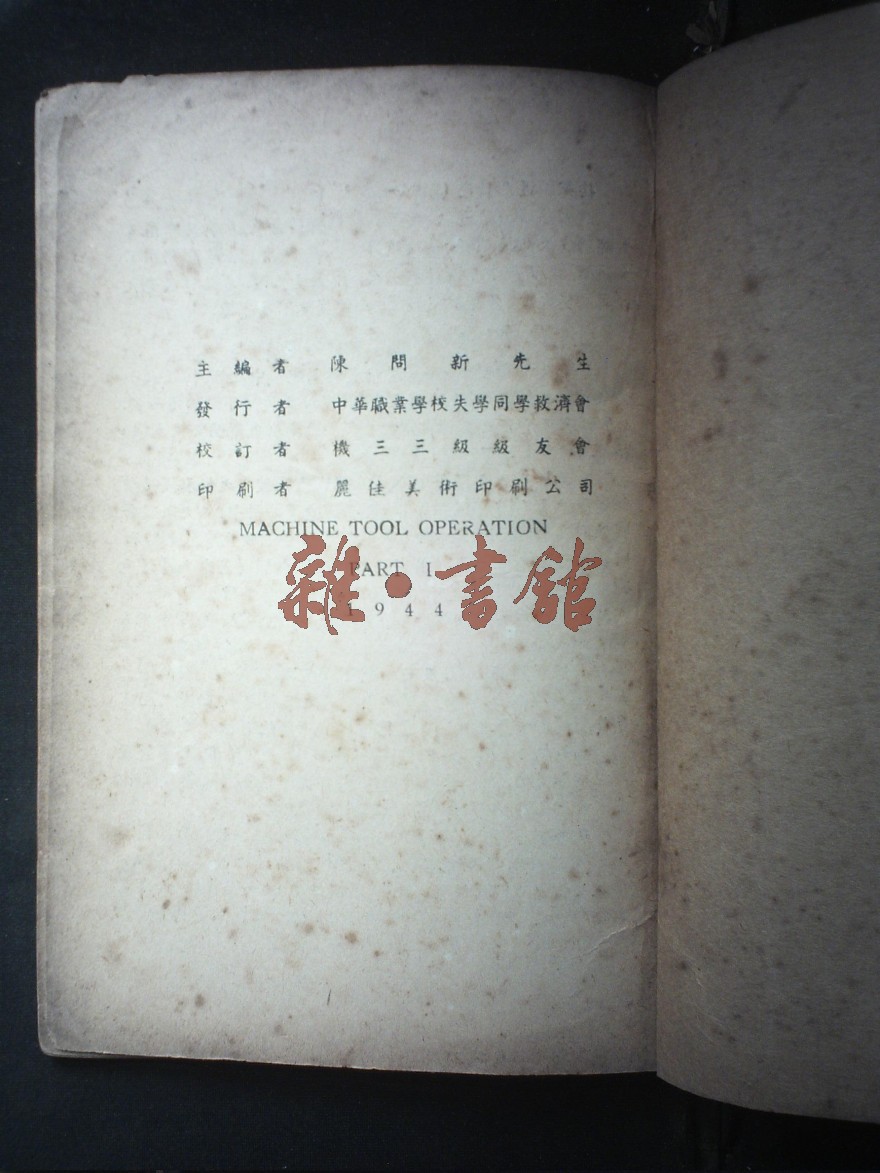 主編者 陳問新先生
發行者 中華職業學校失學同學救濟會
校訂者 機三三級級友會
印刷者 麗佳美術印刷公司
MACHINE TOOL OPERATION
PART I
1944
雜·書館